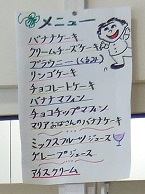 メニュー
バナナケーキ
クリームチーズケーキ
ブラウニー(くるみ)
リンゴケーキ
チョコレートケーキ
バナナマフィン
チョコチップマフィン
マリアおばさんのバナナケーキ
ミックスフルーツジュース
グレープジュース
アイスクリーム